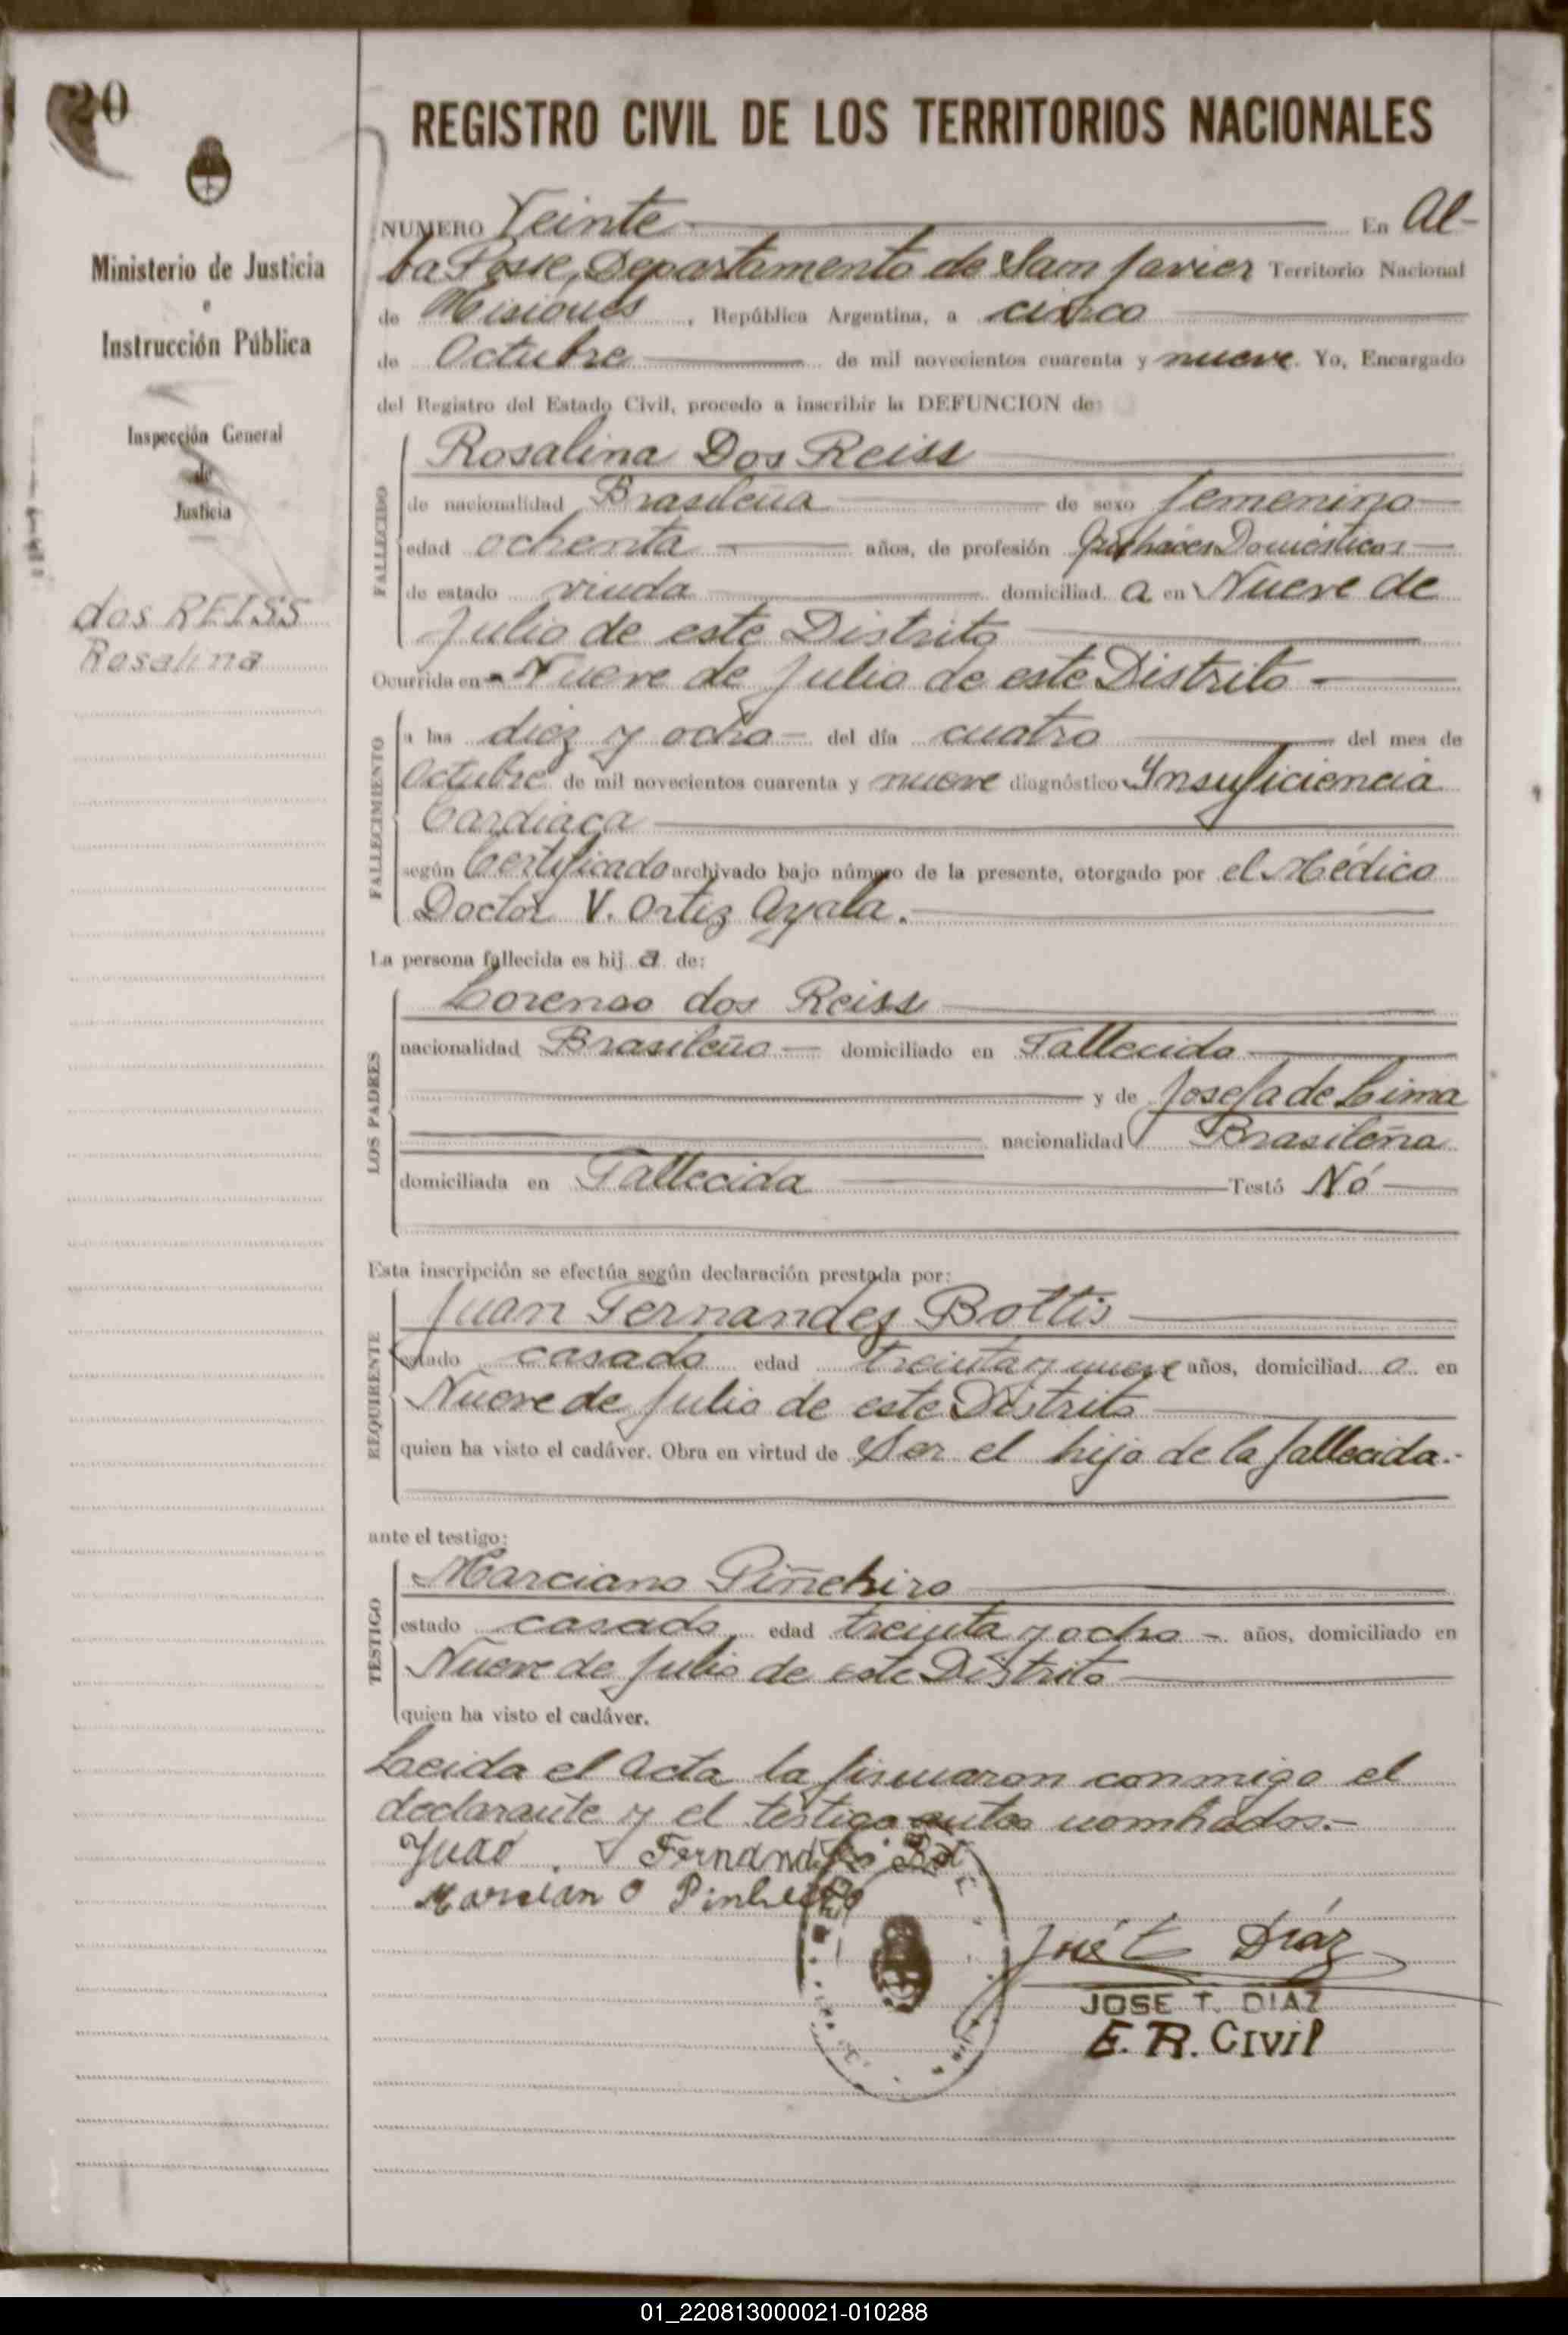 20
REGISTRO CIVIL DE LOS TERRITORIOS NACIONALES
Ministerio de Justicia
e
Instrucción Pública
Inspección General
de
Justicia
dos REISS
Rosalina
NUMERO Veinte En Al-
ba Posse, Departamento de San Javier Territorio Nacional
de Misiones, República Argentina, a cinco
de Octubre de mil novecientos cuarenta y nueve. Yo, Encargado
del Registro del Estado Civil, procedo a inscribir la DEFUNCION de:
FALLECIDO
Rosalina Dos Reiss
de nacionalidad Brasileña de sexo femenino
edad ochenta años, de profesión Quehaceres Domésticos
de estado viuda domiciliad a en Nueve de
Julio de este Distrito
Ocurrida en Nueve de Julio de este Distrito
FALLECIMIENTO
a las diez y ocho del día cuatro del mes de
Octubre de mil novecientos cuarenta y nueve diagnóstico Insuficiencia
Cardiaca
según Certificado archivado bajo número de la presente, otorgado por el Médico
Doctor V. Ortiz Ayala.
La persona fallecida es hij a de:
LOS PADRES
Lorenso dos Reiss
nacionalidad Brasileño domiciliado en Fallecido
y de Josefa de Lima
nacionalidad Brasileña
domiciliada en Fallecida Testó Nó
Esta inscripción se efectúa según declaración prestada por:
REQUIRENTE
Juan Fernandez Bottis
estado casado edad treinta y nueve años, domiciliad o en
Nueve de Julio de este Distrito
quien ha visto el cadáver. Obra en virtud de Ser el hijo de la fallecida.-
ante el testigo:
TESTIGO
Marciano Piñehiro
estado casado edad treinta y ocho - años, domiciliado en
Nueve de Julio de este Distrito
quien ha visto el cadáver.
Leida el acta la firmaron conmigo el
declarante y el testigo antes nombrados.-
Juao Fernandes
Marcian o Pinheiro
José T. Díaz
JOSE T. DIAZ
E. R. CIVIL
01_220813000021-010288